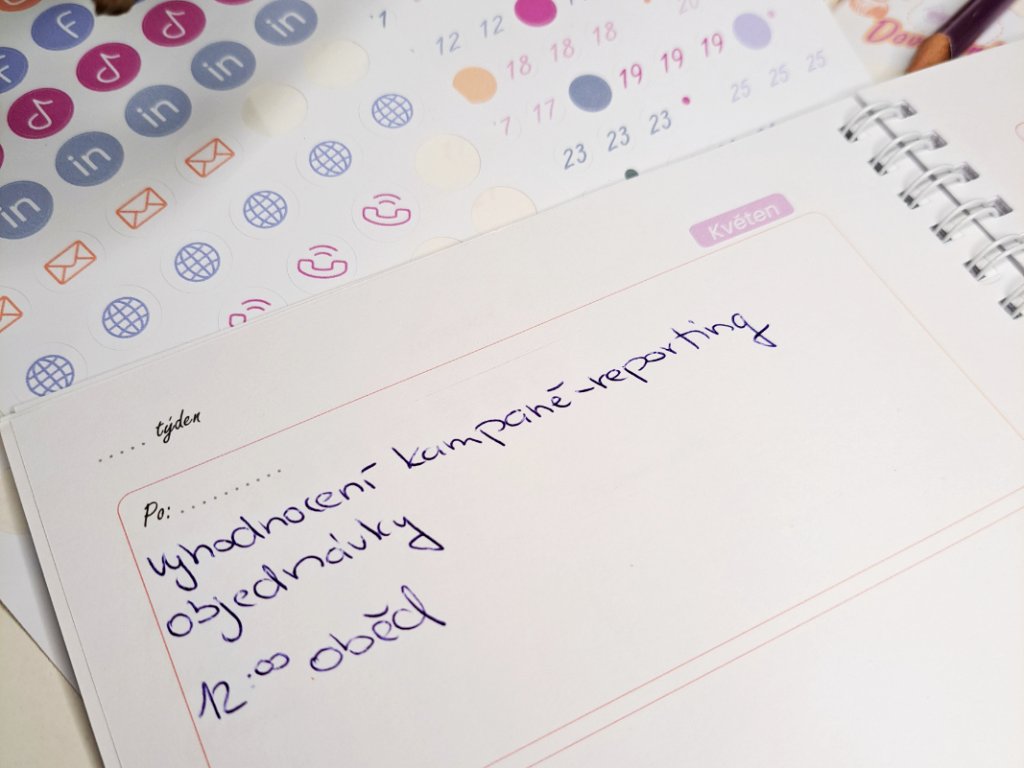 12 12
18 18 18
19 19 19
17
25 25 25
23 23 23
Květen
..... týden
Po: ...........
vyhodnocení kampaně - reporting
objednávky
12.00 oběd